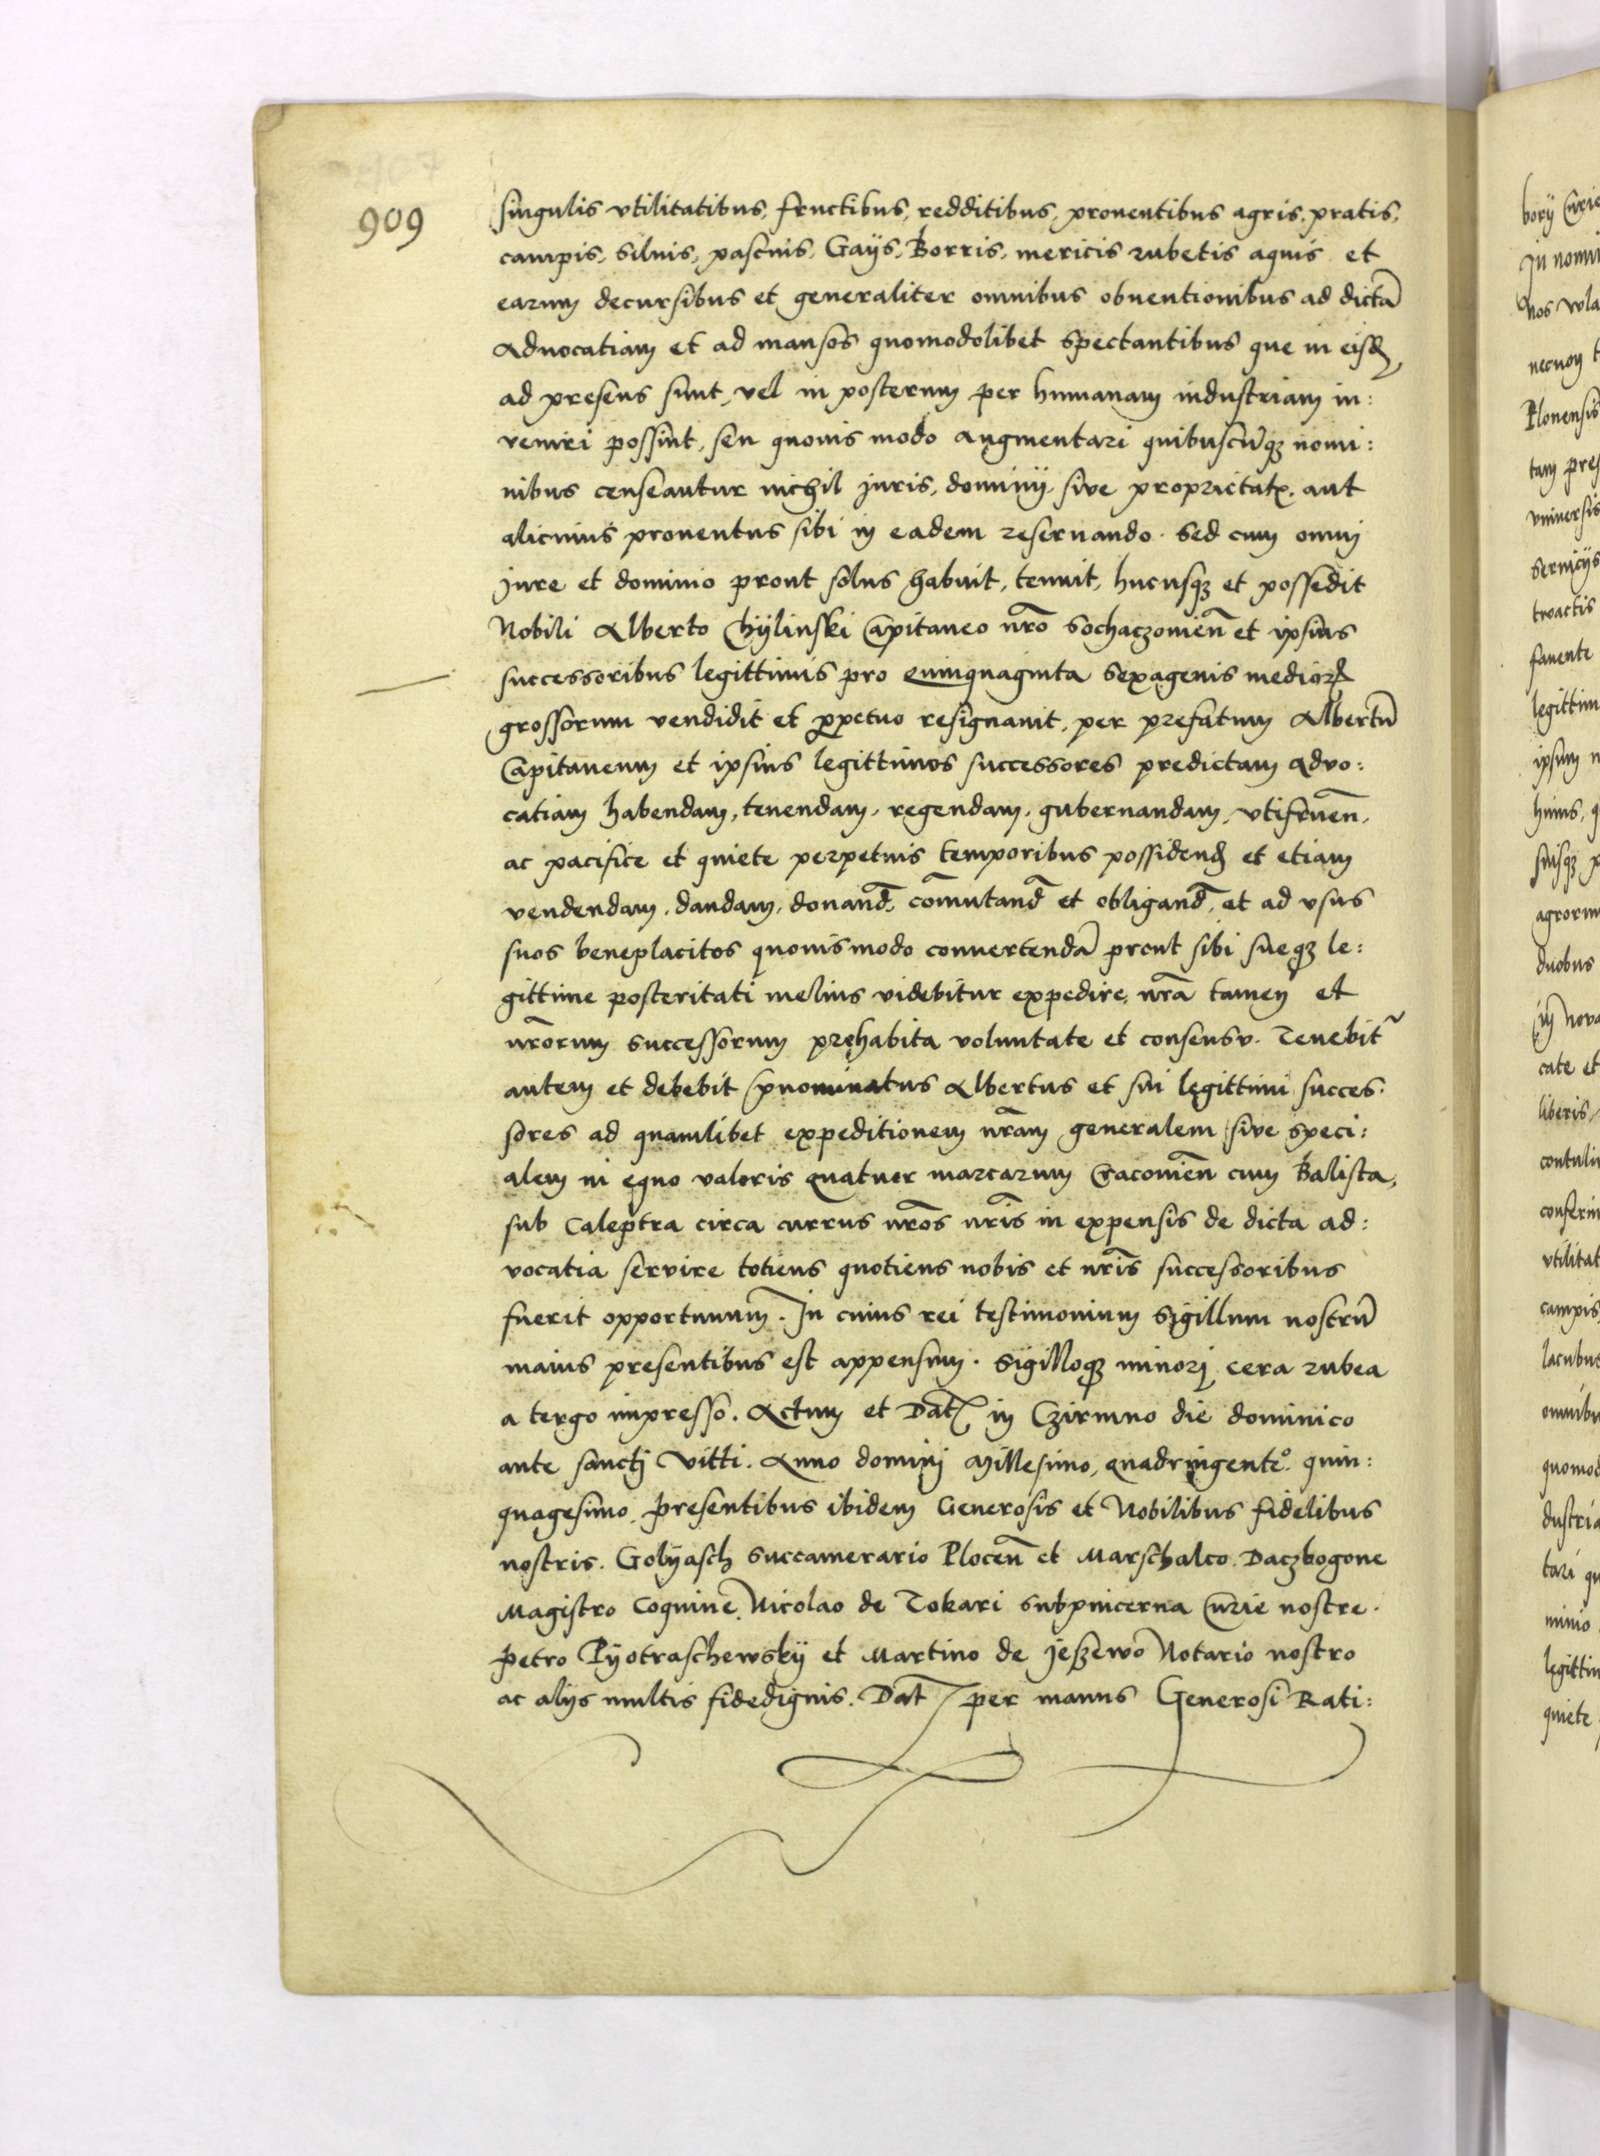 909
singulis vtilitatibus, fructibus, redditibus, prouentibus agris, pratis,
campis, siluis, pascuis, Gaÿs, Borris, mericis rubetis aquis et
earum decursibus et generaliter omnibus obuentionibus ad dictã
Aduocatiam et ad mansos quomodolibet spectantibus que in eisd
ad presens sunt, vel in posterum per humanam industriam in:
veniri possint, seu quouis modo augmentari quibuscũqꝫ nomi:
nibus censeantur nichil juris, dominij sive proprietatꝭ, aut
alicuius prouentus sibi in eadem reseruando. Sed cum omni
jure et dominio prout solus habuit, tenuit, hucusqꝫ et possedit
Nobili Alberto Chÿlinski Capitaneo nr̃o Sochaczouien̄ et ipsius
successoribus legittimis pro quinquaginta sexagenis medioꝝ
grossorum vendidit et ꝑpetuo resignauit, per prefatum Albertũ
Capitaneum et ipsius legittimos successores predictam advo:
catiam habendam, tenendam, regendam, gubernandam, vtifruen̄,
ac pacifice et quiete perpetuis temporibus possidend et etiam
vendendam, dandam, donand̄, com̄utand̄ et obligand̄, et ad vsus
suos beneplacitos quouismodo conuertendã prout sibi sueqꝫ le:
gittime posteritati melius videbitur expedire, nr̃a tamen et
nr̃orum successorum prehabita voluntate et consensv. Tenebit̃
autem et debebit prnominatus Albertus et sui legittimi succes:
sores ad quamlibet expeditionem nr̃am generalem sive speci:
alem in equo valoris quatuor marcarum Cracouien̄ cum Balista,
sub Caleptra circa currus nr̃os nr̃is in expensis de dicta ad:
vocatia servire totiens quotiens nobis et nr̃is successoribus
fuerit opportunum. In cuius rei testimonium Sigillum nostrũ
maius presentibus est appensum. Sigilloqꝫ minori cera rubea
a tergo impresso. Actum et Dat in Czirmno die dominico
ante sancti Vitti. Anno domini Millesimo, quadringente⁰ quin:
quagesimo, presentibus ibidem Generosis et Nobilibus fidelibus
nostris. Golÿasch Succamerario Plocen̄ et Marschalco. Daczbogone
Magistro Coquine, Nicolao de Tokari subpincerna Curie nostre.
Petro Pÿotraschewskÿ et Martino de Jeszewo Notario nostro
ac alijs multis fidedignis. Dat per manus Generosi Rati: